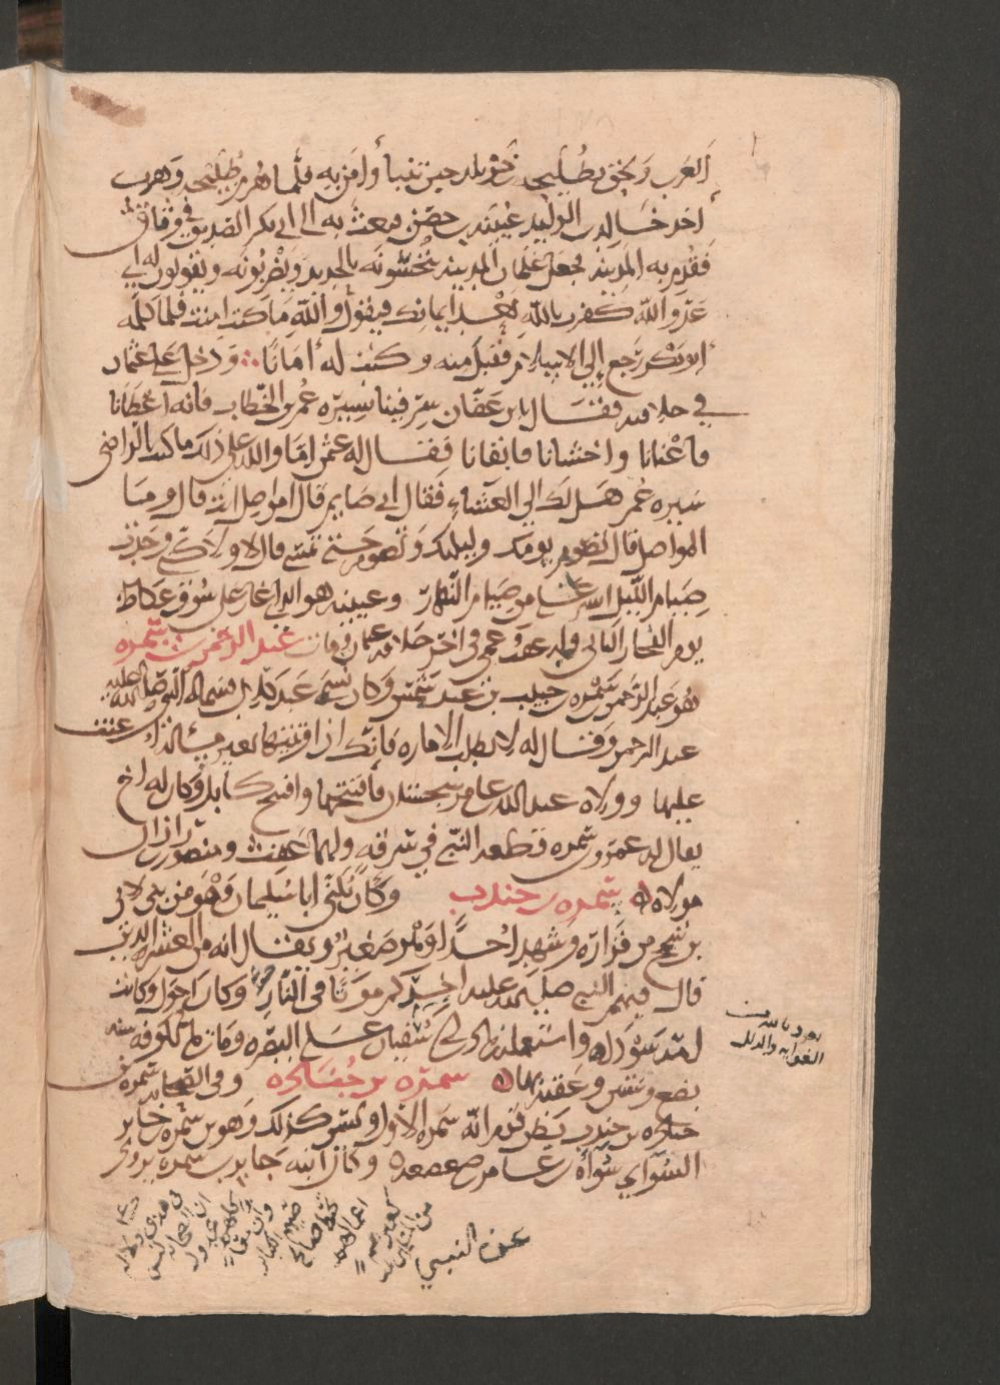 العرب ولحق بطليحه بن خويلد حين تنبأ وامن به فلما هزم طليحه وهرب
اخذ خالد بن الوليد عيينه بن حصن فبعث به الى ابي بكر الصديق في وثاق
فقدم به المدينه فجعل غلمان المدينه ينخسونه بالجريد ويضربونه ويقولون له اي
عدو الله كفرت بالله بعد ايمانك فيقول والله ما كنت امنت فلما كلمه
ابو بكر رجع إلى الاسلام فقبل منه وكتب له أمانا ودخل على عثمان
في خلافته فقال يا بن عفان سر فينا بسيره عمر بن الخطاب فانه اعطانا
فاغنانا واخشانا فاتقانا فقال له عثمن اما والله على ذلك ما كنت بالراضي
سيره عمر هل لك الى العشاء فقال اني صايم قال امواصل انت قال وما
المواصل قال تصوم يومك وليلتك وتصوم حتى تمسي قال لا ولكني وجدت
صيام الليل ايسر علي من صيام النهار وعيينه هو الذي اغار على سوق عكاظ
يوم الفجار الثاني وله عقب وعمي في اخر خلافه عثمان ومات عبد الرحمن بن سمره
هو عبد الرحمن بن سمره بن حبيب بن عبد شمس وكان يسمى عبد كلال فسماه النبي صلى الله عليه
عبد الرحمن وقال له لا تطلب الاماره فانك ان اوتيتها بغير مسأله اعنت
عليها وولاه عبد الله بن عامر سجستان فافتتحها وافتتح كابل وكان له اخ
يقال له عمرو بن سمره قطعه النبي في سرقه ولهما عقب ومنصور بن زاذان
مولاه سمره بن جندب وكان يكنى ابا سليمان وهو من بني لاي
بن شمخ من فزاره وشهد احدا وهو صغير ويقال انه من العشره الذين
قال فيهم النبي صلى الله عليه اخركم موتا في النار وكان احول وكانت
امه سوداء واستعمله زياد بن ابي سفيان على البصره ومات بالكوفه سنه
بضع وستين وعقبه بها سمره بن جناده وفي الصحابه سمره بن
جناده بن جندب يظن قوم انه سمره الاول وليس كذلك وهو من سمره جابر
السوآي سوأة بن عامر بن صعصعه وكان ابنه جابر بن سمره يروي
عن النبي